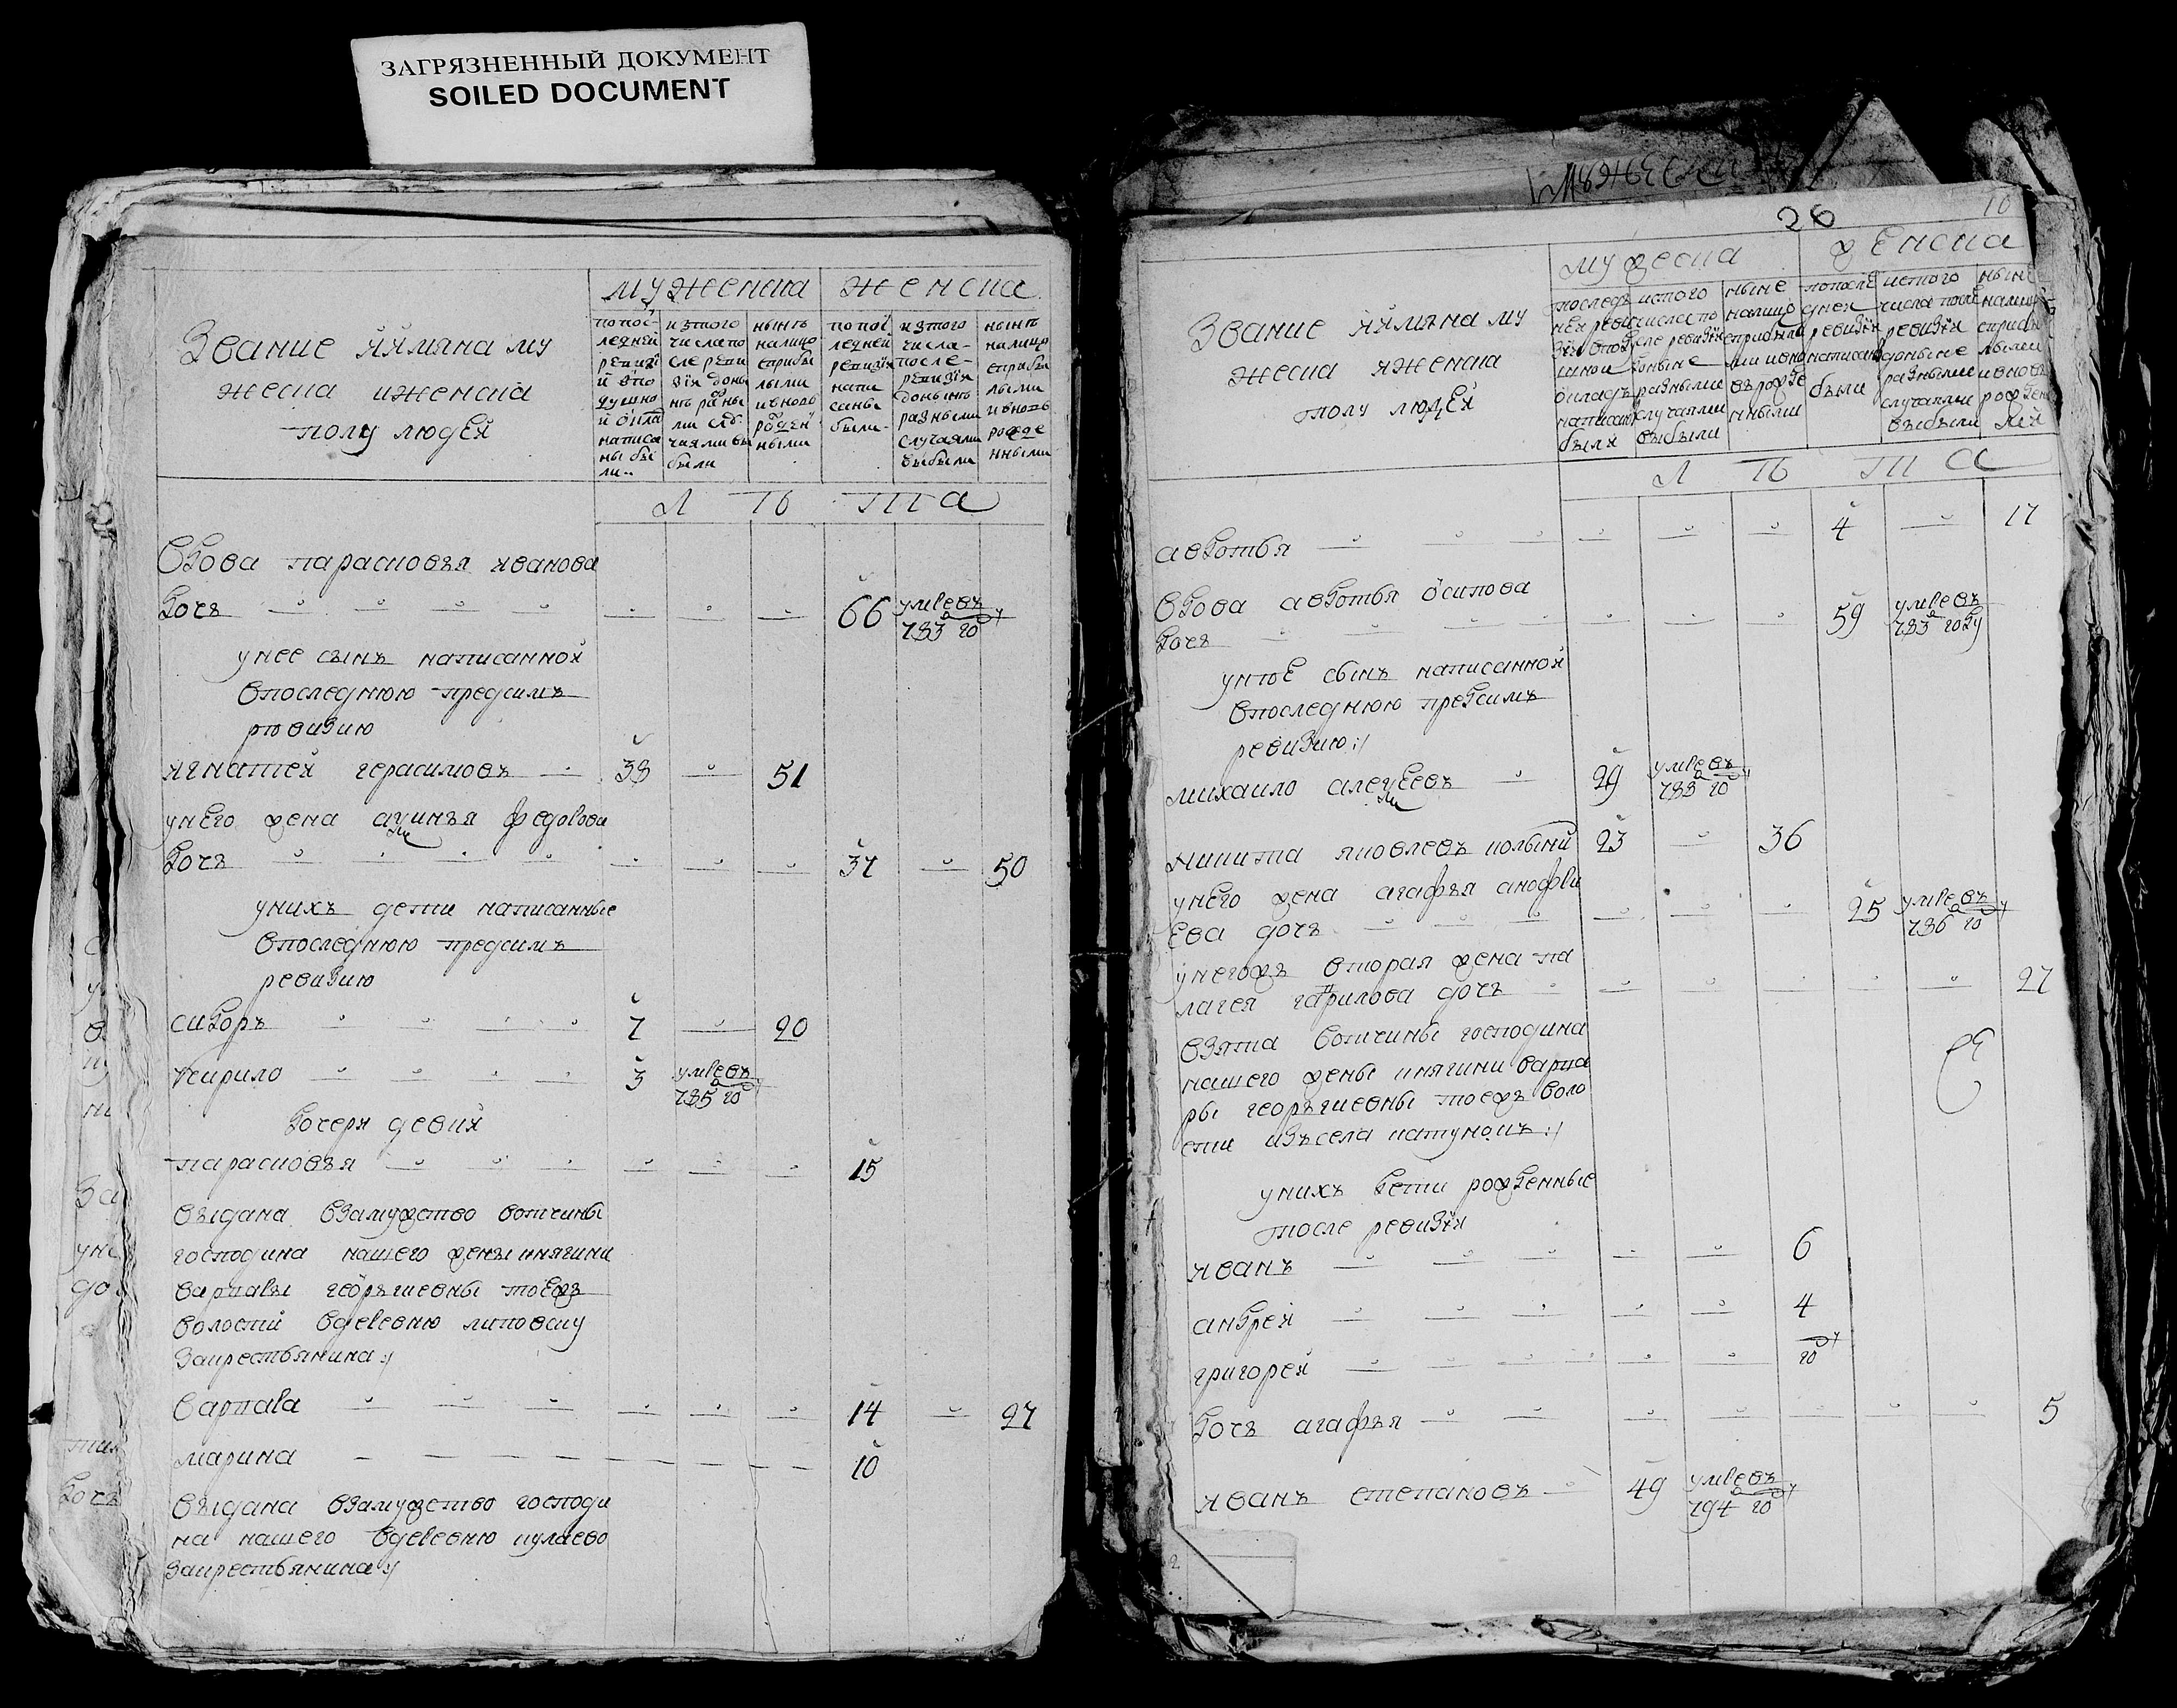 ЗАГРЯЗНЕННЫЙ ДОКУМЕНТ
SOILED DOCUMENT
Звание иимяна му
жеска иженска
полу людей
мужеска женска
попос-
ледней
ревизïи
впо
душно
й окла
написа
ны бы
ли
изтого
числапо
сле реви
зïи доны
нѣ разны
ми слу
чаями вы
были
нынѣ
налицо
сприбы
лыми
ивновь
рожден
ными
попос
ледней
ревизïи
напи
саны
были
изтого
числа-
после-
ревизïи
донынѣ
разными
случаями
выбыли
нынѣ
налицо
сприбы
лыми
ивновь
рожде
нными
Л ѣ т а
Вдова парасковья иванова
дочь 66 умре въ
783 году
унее сынъ написанной
впоследнюю предсимъ
ревизию
игнатей герасимовъ 38 51
унего жена акулинья федорова
дочь 37 50
унихъ дети написанные
впоследнюю предсимъ
ревизию
сидоръ 7 20
кирило 3 умре въ
785 году
дочери девки
парасковья 15
выдана взамужство вотчины
господина нашего жены княгини
варвары георьгиевны тоежъ
волости вдеревню липовку
закрестьянина :/
варвара 14 27
марина 10
выдана взамужство господи
на нашего вдеревню кулаево
закрестьянина :/
26 10
Звание иимяна му
жеска иженска
полу людей
мужеска женска
последъ
ней реви
зïи впод
шной
окладъ
написаны
были
истого
числа по
сле ревизïи
доныне
разными
случаями
выбыли
ныне
налицо
сприбылы
ми ивно
въ рожде
нными
попосле
дней
ревизïи
написаны
были
истого
числа после
ревизïи
доныне
разными
случаями
выбыли
ныне
налицо
сприбы
лыми
ивновь
рожден
Л ѣ т а
авдотья 4 17
Вдова авдотья осипова
дочь 59 умре въ
783 году
унее сынъ написанной
впоследнюю предсимъ
ревизию :/
михаило алексеевъ 29 умре въ
783 году
никита яковлевъ 23 36
унего жена агафья анофри
ева дочь 25 умре въ
786 году
унегожъ вторая жена па
лагея гаврилова дочь 27
взята вотчины господина
нашего жены княгини варва
ры георьгиевны тоежъ воло
сти изъсела
унихъ дети рожденные
после ревизïи
иванъ 6
андрей 4
григорей году
дочь агафья 5
иванъ степановъ 49 умре въ
794 году